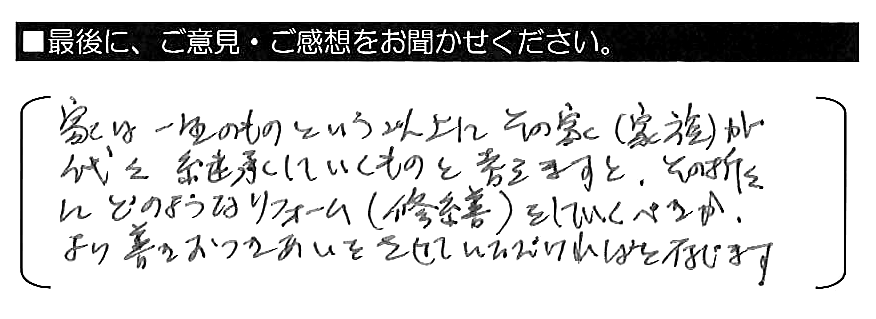 ■最後に、ご意見・ご感想をお聞かせください。
家は一生のものという以上にその家(家族)が
代々継承していくものと考えますと、その折々
にどのようなリフォーム(修繕)をしていくべきか、
より善きおつきあいをさせていただければと存じます